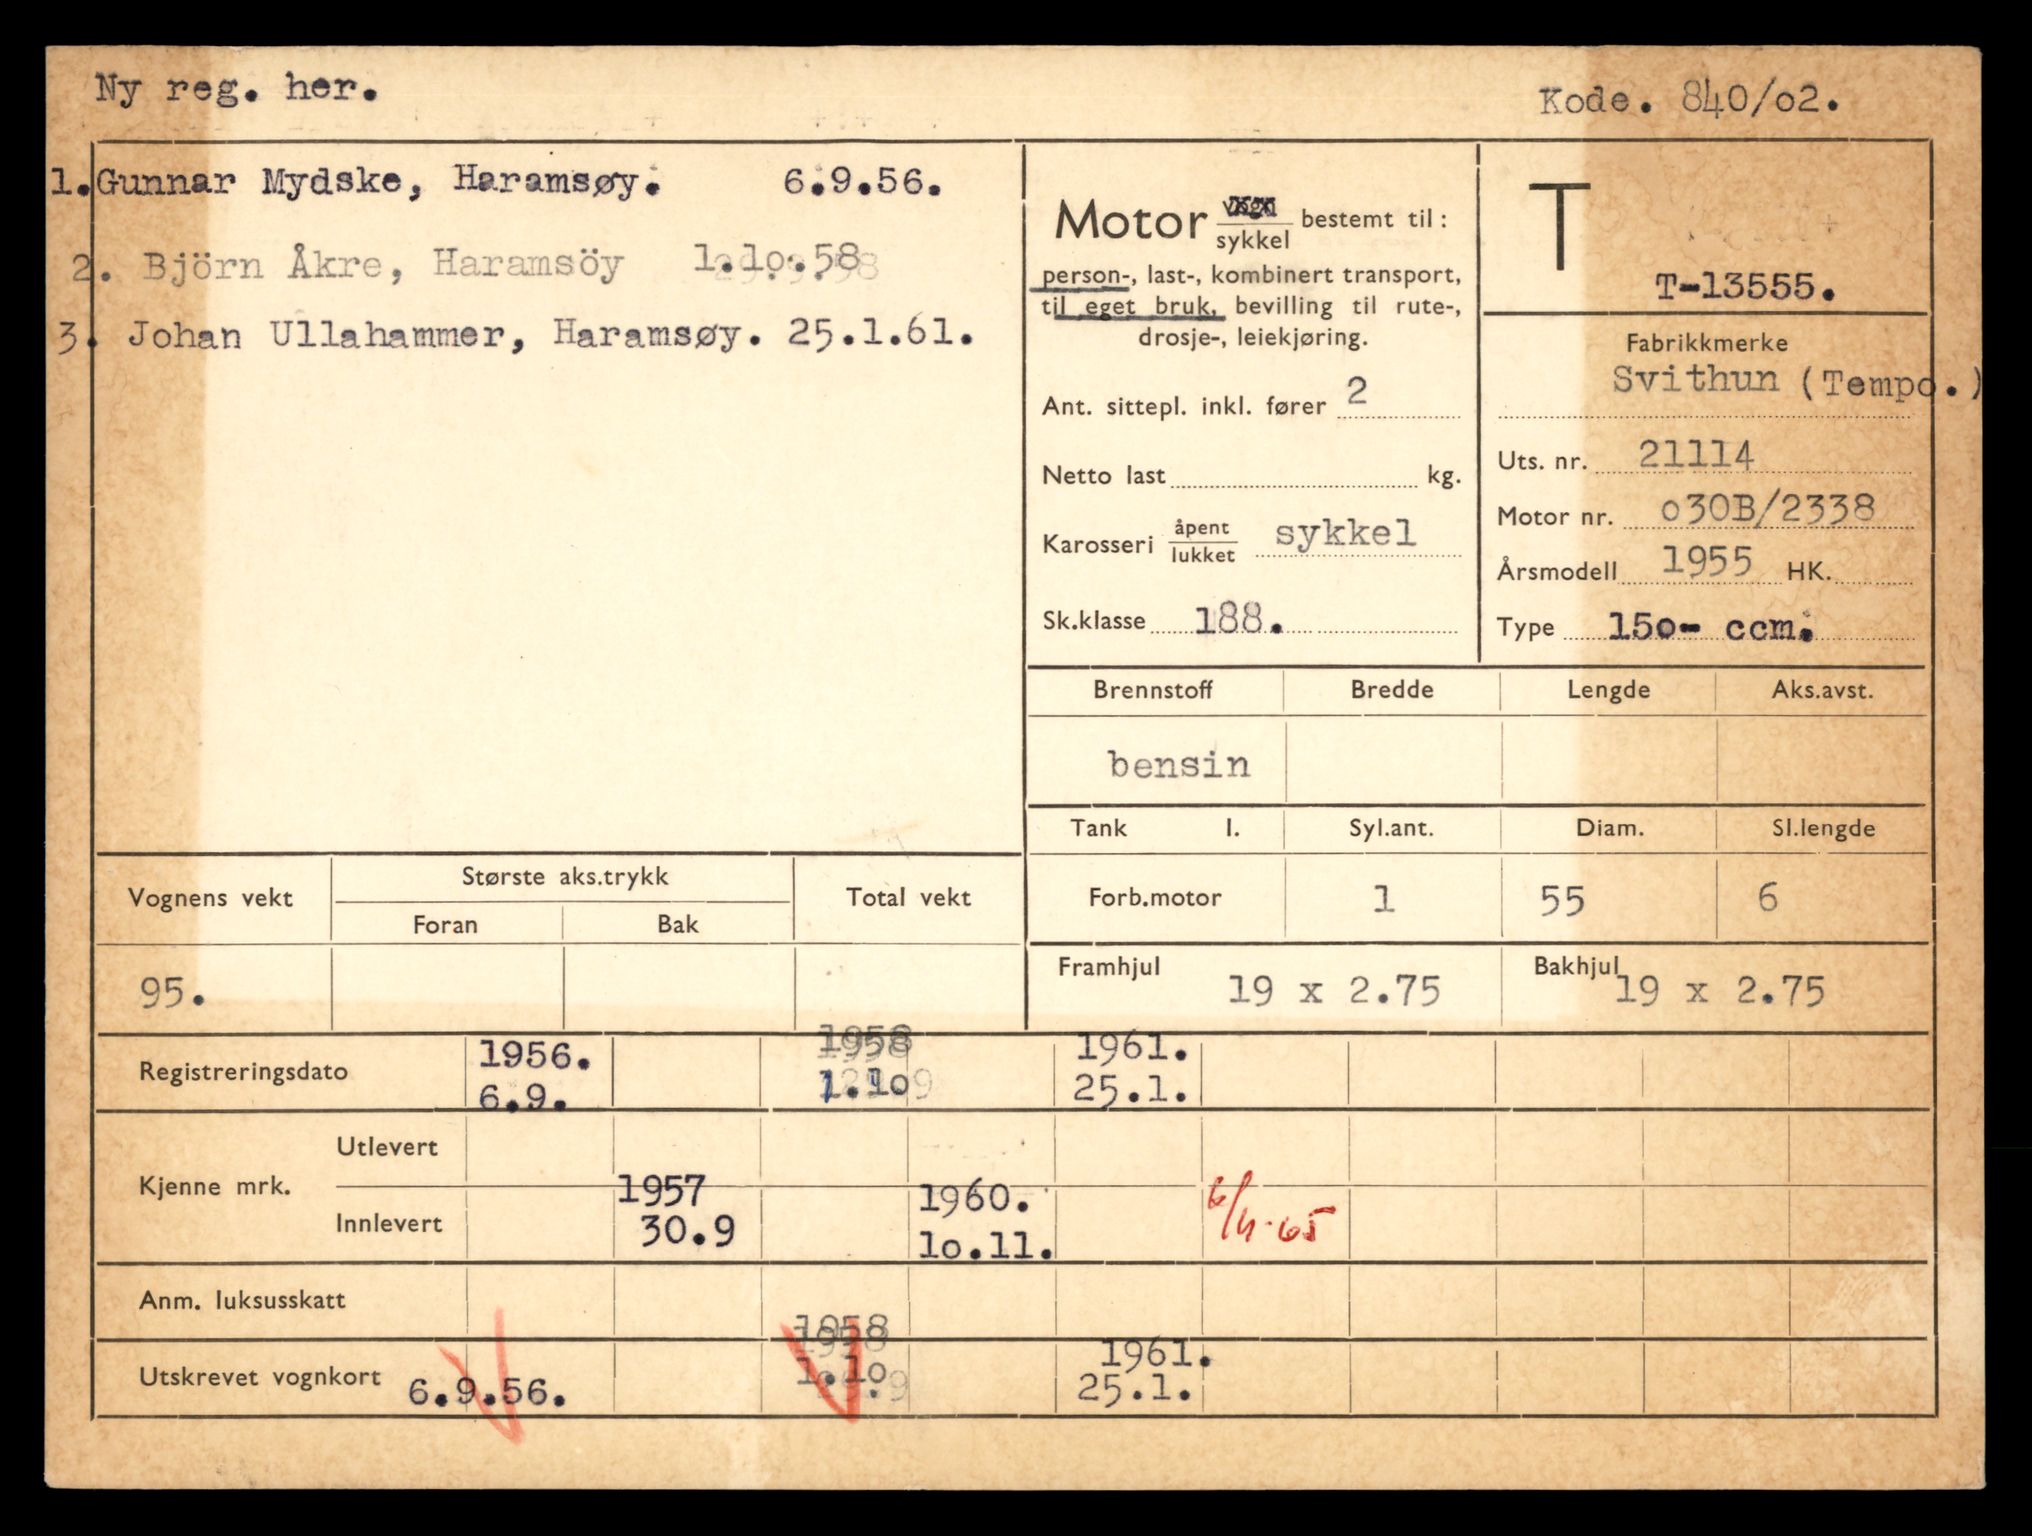 Ny reg. her.
Kode. 840/o2.
1.Gunnar Mydske, Haramsøy. 6.9.56.
2. Björn Åkre, Haramsöy 1.1o.58
3. Johan Ullahammer, Haramsøy. 25.1.61.
Motor vogn sykkel bestemt til:
person-, last-, kombinert transport,
til eget bruk, bevilling til rute-,
drosje-, leiekjøring.
Ant. sittepl. inkl. fører 2
Netto last kg.
Karosseri åpent lukket sykkel
Sk.klasse 188.
T
T-13555.
Fabrikkmerke
Svithun (Tempo.)
Uts. nr. 21114
Motor nr. o30B/2338
Årsmodell 1955 HK.
Type 15o- ccm.
Brennstoff Bredde Lengde Aks.avst.
bensin
Tank l. Syl.ant. Diam. Sl.lengde
Forb.motor 1 55 6
Framhjul 19 x 2.75 Bakhjul 19 x 2.75
Vognens vekt Største aks.trykk Total vekt
Foran Bak
95.
Registreringsdato 1956. 1958 1961.
6.9. 1.1o 25.1.
Kjenne mrk. Utlevert
Innlevert 1957 1960. 6/4.65
30.9 1o.11.
Anm. luksusskatt
1958 1961.
Utskrevet vognkort 6.9.56. 1.1o 25.1.